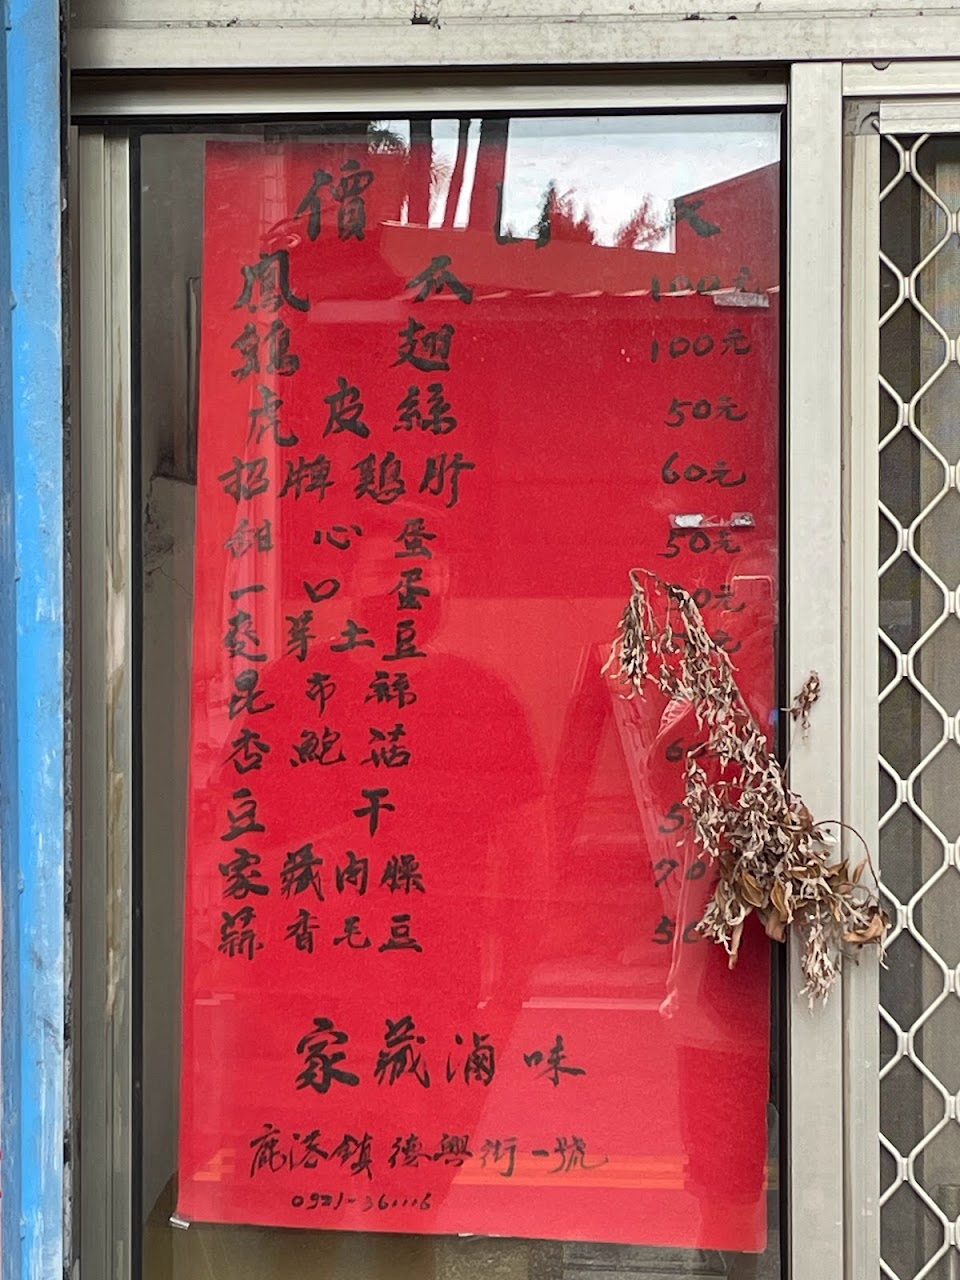 價目表
鳳爪 100元
鷄翅 100元
虎皮絲 50元
招牌鷄肝 60元
甜心蛋 50元
一口蛋 0元
麥芽土豆 元
昆布
杏鮑菇 6
豆干 5
家藏肉燥 70
蒜香毛豆 50
家藏滷味
鹿港鎮德興街一號
0921-361116